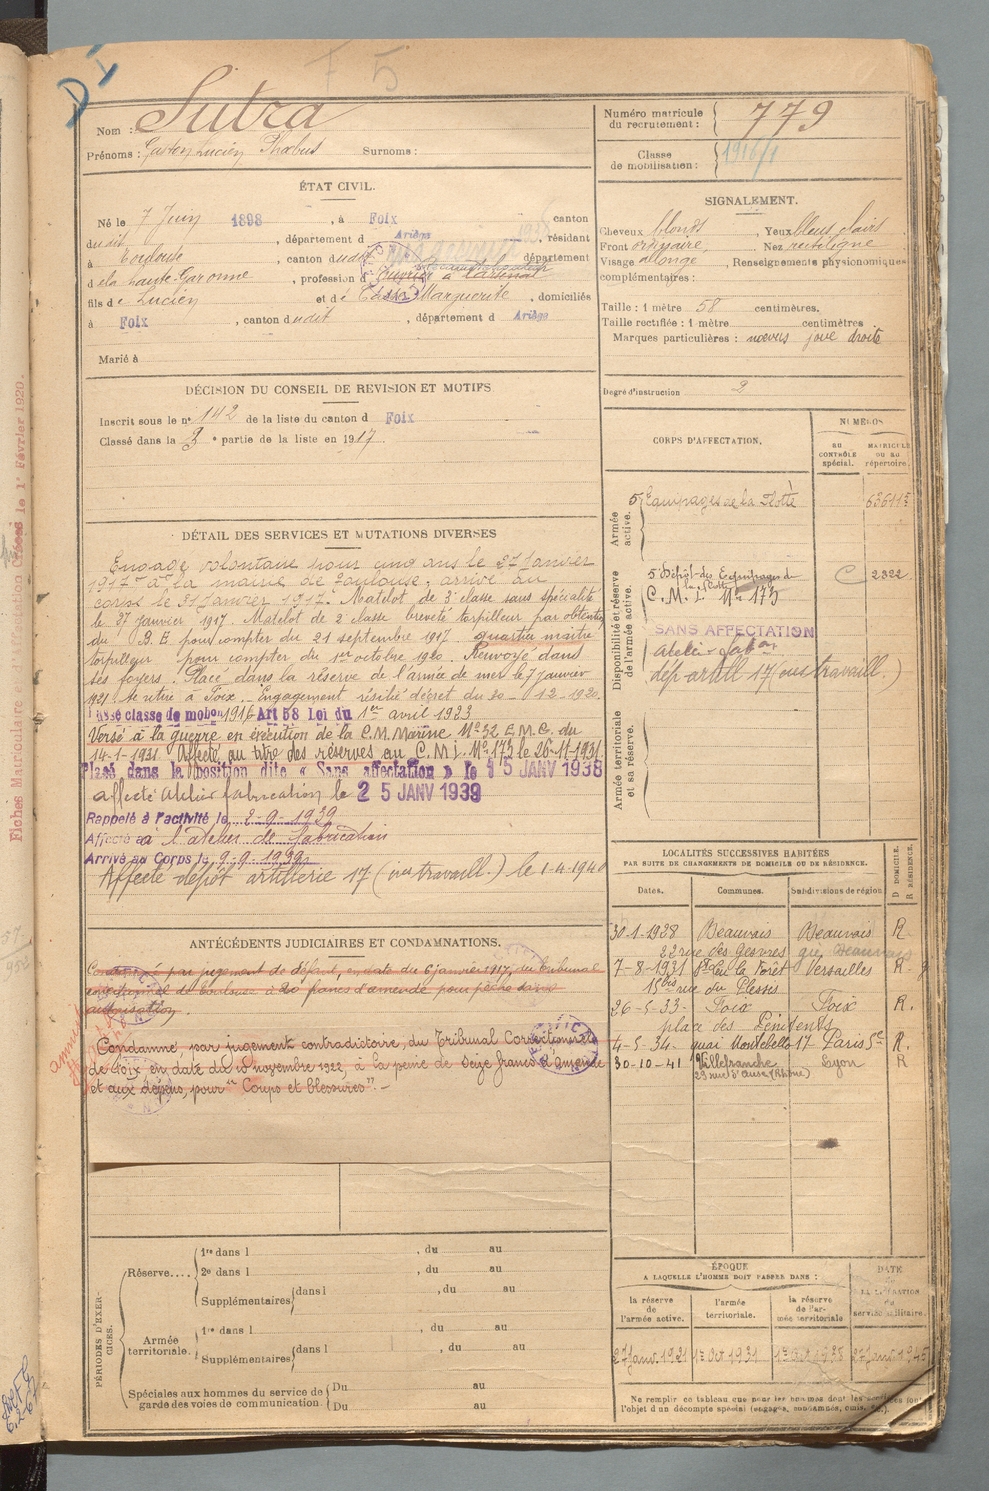 D I
F 5
Nom : Sutra
Prénoms : Gaston, Lucien Phœbus Surnoms :
Numéro matricule du recrutement : 779
Classe de mobilisation : 1916/1
ÉTAT CIVIL.
Né le 7 Juin 1898, à Foix canton
dudit, département d Ariège, résidant
à Toulouse, canton dudit département
de la Haute-Garonne, profession d
fils de Lucien et de Marguerite, domiciliés
à Foix, canton dudit, département d Ariège
Marié à
SIGNALEMENT.
Cheveux blonds Yeux bleus clairs
Front ordinaire, Nez rectiligne
Visage allongé, Renseignements physionomiques
complémentaires :
Taille : 1 mètre 58 centimètres.
Taille rectifiée : 1 mètre centimètres
Marques particulières : noevus joue droite
Degré d'instruction 2
DÉCISION DU CONSEIL DE REVISION ET MOTIFS
Inscrit sous le n° 142 de la liste du canton d Foix
Classé dans la 3e partie de la liste en 1917.
CORPS D'AFFECTATION.
NUMÉROS
AU CONTRÔLE spécial.
MATRICULE OU AU répertoire.
Armée active.
5e Equipages de la Flotte
Disponibilité et réserve de l'armée active.
5e Dépôt des Equipages de la Flotte C 2322
C.M.I. N° 173
SANS AFFECTATION
Atelier fabon
dép artil 17 (ous travaill.)
Armée territoriale et sa réserve.
DÉTAIL DES SERVICES ET MUTATIONS DIVERSES
Engagé volontaire pour cinq ans le 27 Janvier
1917 à la mairie de Toulouse; arrivé au
corps le 31 Janvier 1917. Matelot de 3e classe sans spécialité
le 27 janvier 1917. Matelot de 2e classe breveté torpilleur par obtention
du B.E pour compter du 21 septembre 1917 quartier maître
torpilleur pour compter du 1er octobre 1920. Renvoyé dans
ses foyers. Placé dans la réserve de l'armée de mer le 7 janvier
1921. Se retire à Foix. Engagement résilié décret du 30-12-1920.
Passé classe de mobon 1916 Art 58 Loi du 1er avril 1923
Versé à la guerre en exécution de la C.M. Marine N° 32 E.M.G. du
14-1-1931. Affecté au titre des réserves au C.M.I. N° 173 le 26-11-1931
Placé dans la position dite « Sans affectation » le 15 JANV 1938
affecté Atelier fabrication le 25 JANV 1939
Rappelé à l'activité le 2-9-1939
Affecté à l'atelier de fabrication
Arrivé au Corps le 9-9-1939
Affecté dépôt artillerie 17 (ous travaill.) le 1-4-1940
ANTÉCÉDENTS JUDICIAIRES ET CONDAMNATIONS.
Condamné par jugement de défaut, en date du 6 janvier 1917, du tribunal
correctionnel de Toulouse à 20 francs d'amende pour pêche sans
autorisation.
Condamné, par jugement contradictoire, du Tribunal Correctionnel
de Foix en date du 15 novembre 1922, à la peine de Seize francs d'Amende
et aux dépens, pour "Coups et blessures".-
LOCALITÉS SUCCESSIVES HABITÉES
PAR SUITE DE CHANGEMENTS DE DOMICILE OU DE RÉSIDENCE.
Dates. Communes. Subdivisions de région
D DOMICILE. R RÉSIDENCE.
30-1-1928 Beauvais Beauvais R
22 rue des Gesvres
7-8-1931 St Leu la Forêt Versailles R.
15bis rue du Plessis
26-5-33 Foix Foix R.
place des Pénitents
4-5-34 quai Montebello 17 Paris R.
30-10-41 Villefranche Lyon R
23 rue d'Anse (Rhône)
PÉRIODES D'EXERCICES.
Réserve.... 1re dans l , du au
2e dans l , du au
Supplémentaires dans l , du au
Armée territoriale. 1re dans l , du au
Supplémentaires dans l , du au
Spéciales aux hommes du service de garde des voies de communication. Du au
Du au
ÉPOQUE
A LAQUELLE L'HOMME DOIT PASSER DANS :
la réserve de l'armée active.
l'armée territoriale.
la réserve de l'armée territoriale
DATE DE LA LIBÉRATION du service militaire.
27 Janv. 1921 1er Oct 1931
Ne remplir ce tableau que pour les hommes dont les services font
l'objet d'un décompte spécial (engagés, condamnés, omis, etc.).
Fiches Matriculaire et d'Affection Créées le 1er Février 1920.